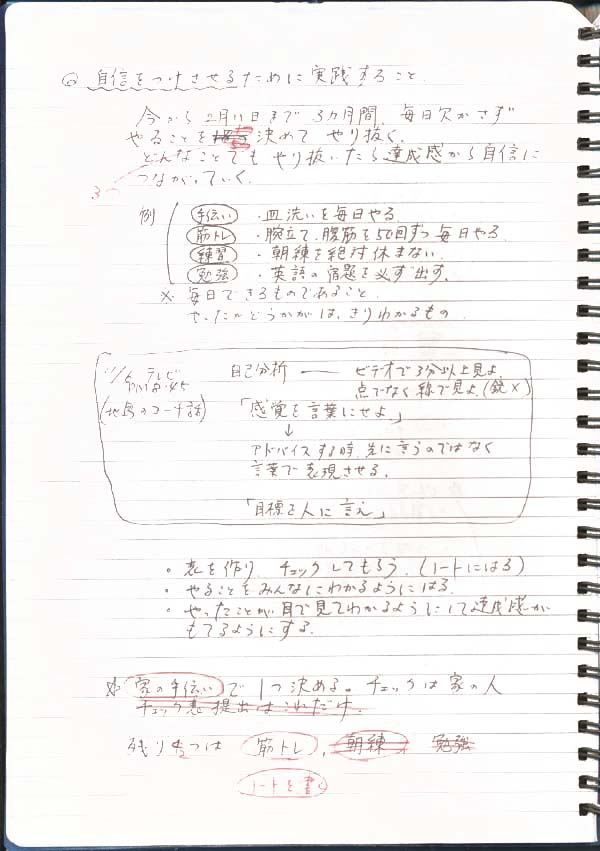 ◎ 自信をつけさせるために実践すること
今から2月11日まで3ヵ月間、毎日欠かさず
やることを 決めて やり抜く。
どんなことでもやり抜いたら達成感から自信に
つながっていく。
3
例 手伝い ・皿洗いを毎日やる
筋トレ ・腕立て、腹筋を50回ずつ毎日やる
練習 ・朝練を絶対休まない
勉強 ・英語の宿題を必ず出す。
※ 毎日できるものであること
やったかどうかがはっきりわかるもの
テレビ 自己分析 ― ビデオで3分以上見よ
点でなく線で見よ(鏡×)
(地島のコーチ話) 「感覚を言葉にせよ」
↓
アドバイスする時、先に言うのではなく
言葉で表現させる。
「目標を人に言え」
・表を作り、チェックしてもらう。(ノートにはる)
・やることをみんなにわかるようにはる。
・やったことが目で見てわかるようにして達成感が
もてるようにする。
☆ 家の手伝いで1つ決める。チェックは家の人
チェック表提出はこれだけ
残り2つは 筋トレ, 朝練 勉強
ノートを書く